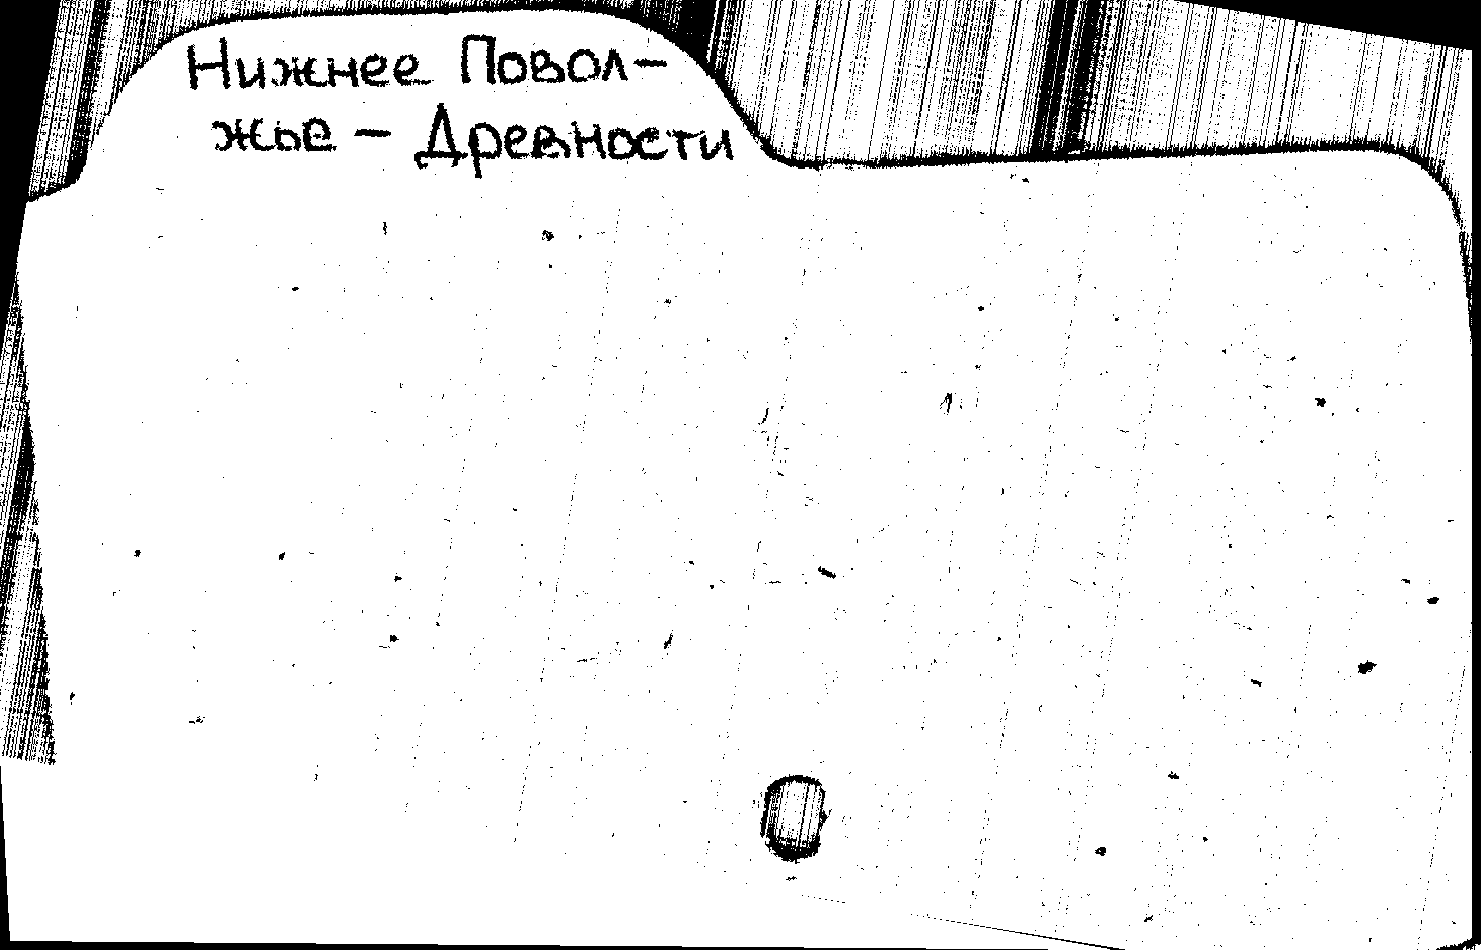 Нижнее Повол-
жье - Древности